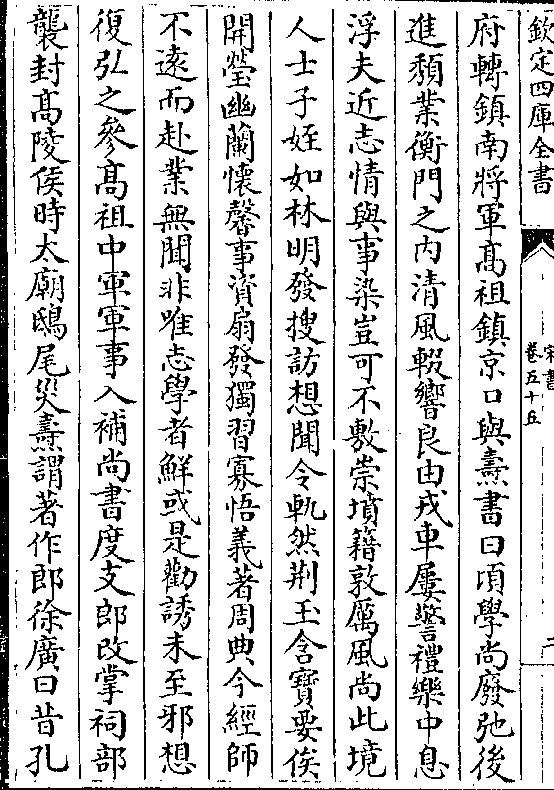 欽定四庫全書
宋書
卷五十五
二
府轉鎮南將軍髙祖鎮京口與燾書曰頃學尚廢弛後
進頽業衡門之内清風輟響良由戎車屢警禮樂中息
浮夫近志情與事染豈可不敷崇墳籍敦厲風尚此境
人士子姪如林明發搜訪想聞令軌然荆玉含寳要俟
開瑩幽蘭懐馨事資扇發獨習寡悟義著周典今經師
不逺而赴業無聞非唯志學者鮮或是勸誘未至邪想
復弘之參髙祖中軍軍事入補尚書度支郎改掌祠部
襲封髙陵侯時太廟鴟尾災燾謂著作郎徐廣曰昔孔